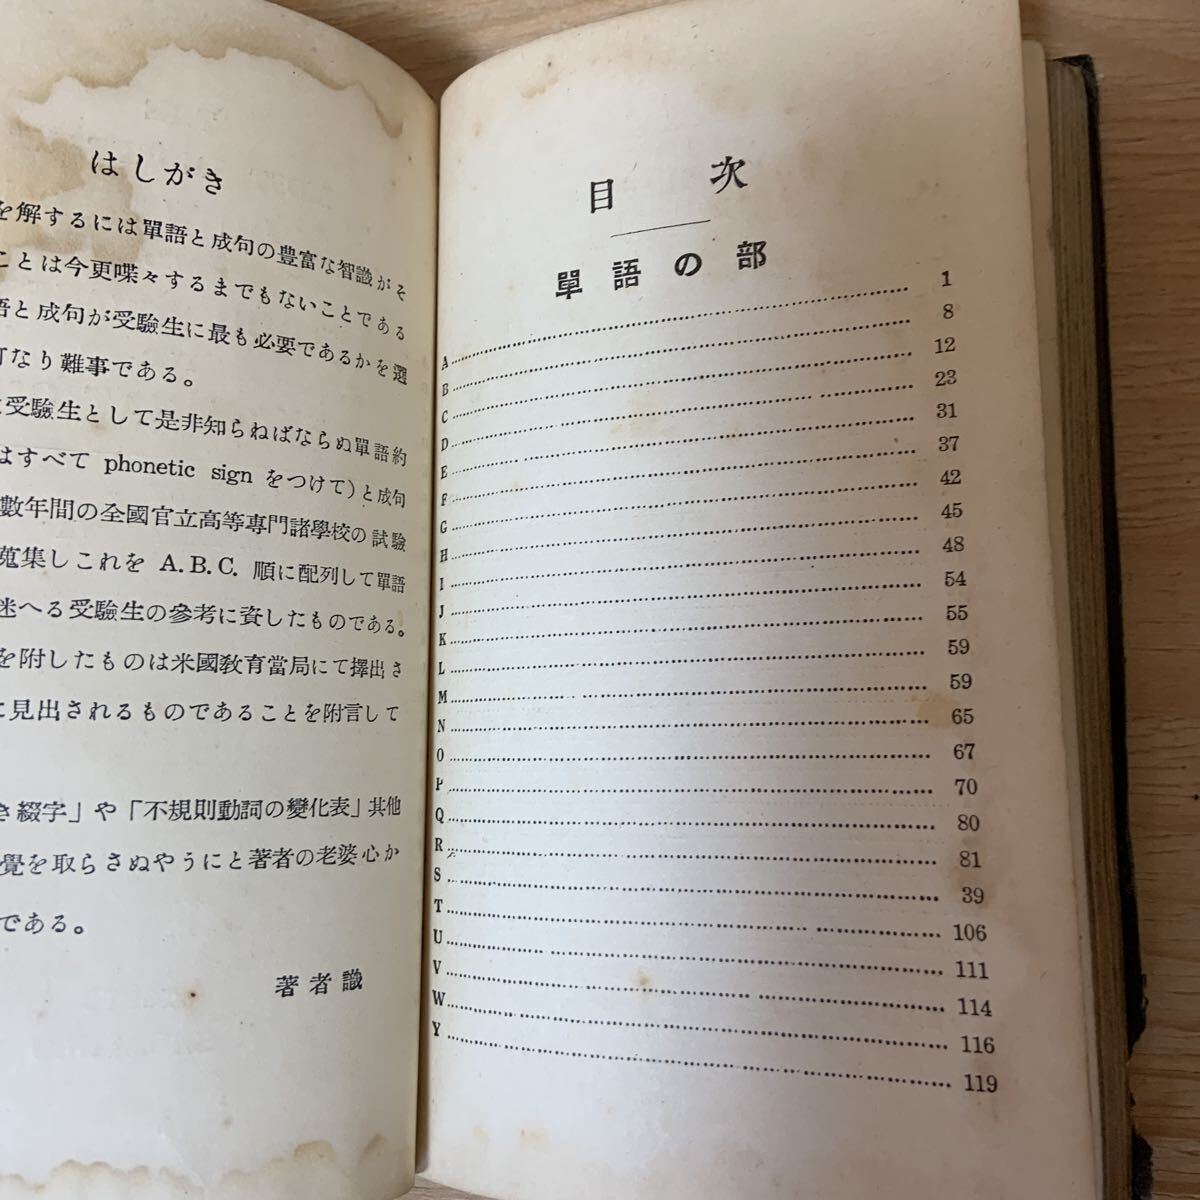 はしがき
を解するには單語と成句の豊富な智識がそ
ことは今更喋々するまでもないことである
語と成句が受驗生に最も必要であるかを選
なり難事である。
受驗生として是非知らねばならぬ單語約
はすべて phonetic sign をつけて)と成句
數年間の全國官立高等專門諸學校の試驗
蒐集しこれを A.B.C. 順に配列して單語
迷へる受驗生の參考に資したものである。
を附したものは米國敎育當局にて擇出さ
に見出されるものであることを附言して
き綴字」や「不規則動詞の變化表」其他
覺を取らさぬやうにと著者の老婆心か
である。
著者識
目次
單語の部
A 1
B 8
C 12
D 23
E 31
F 37
G 42
H 45
I 48
J 54
K 55
L 59
M 59
N 65
O 67
P 70
Q 80
R 81
S 39
T 106
U 111
V 114
W 116
Y 119